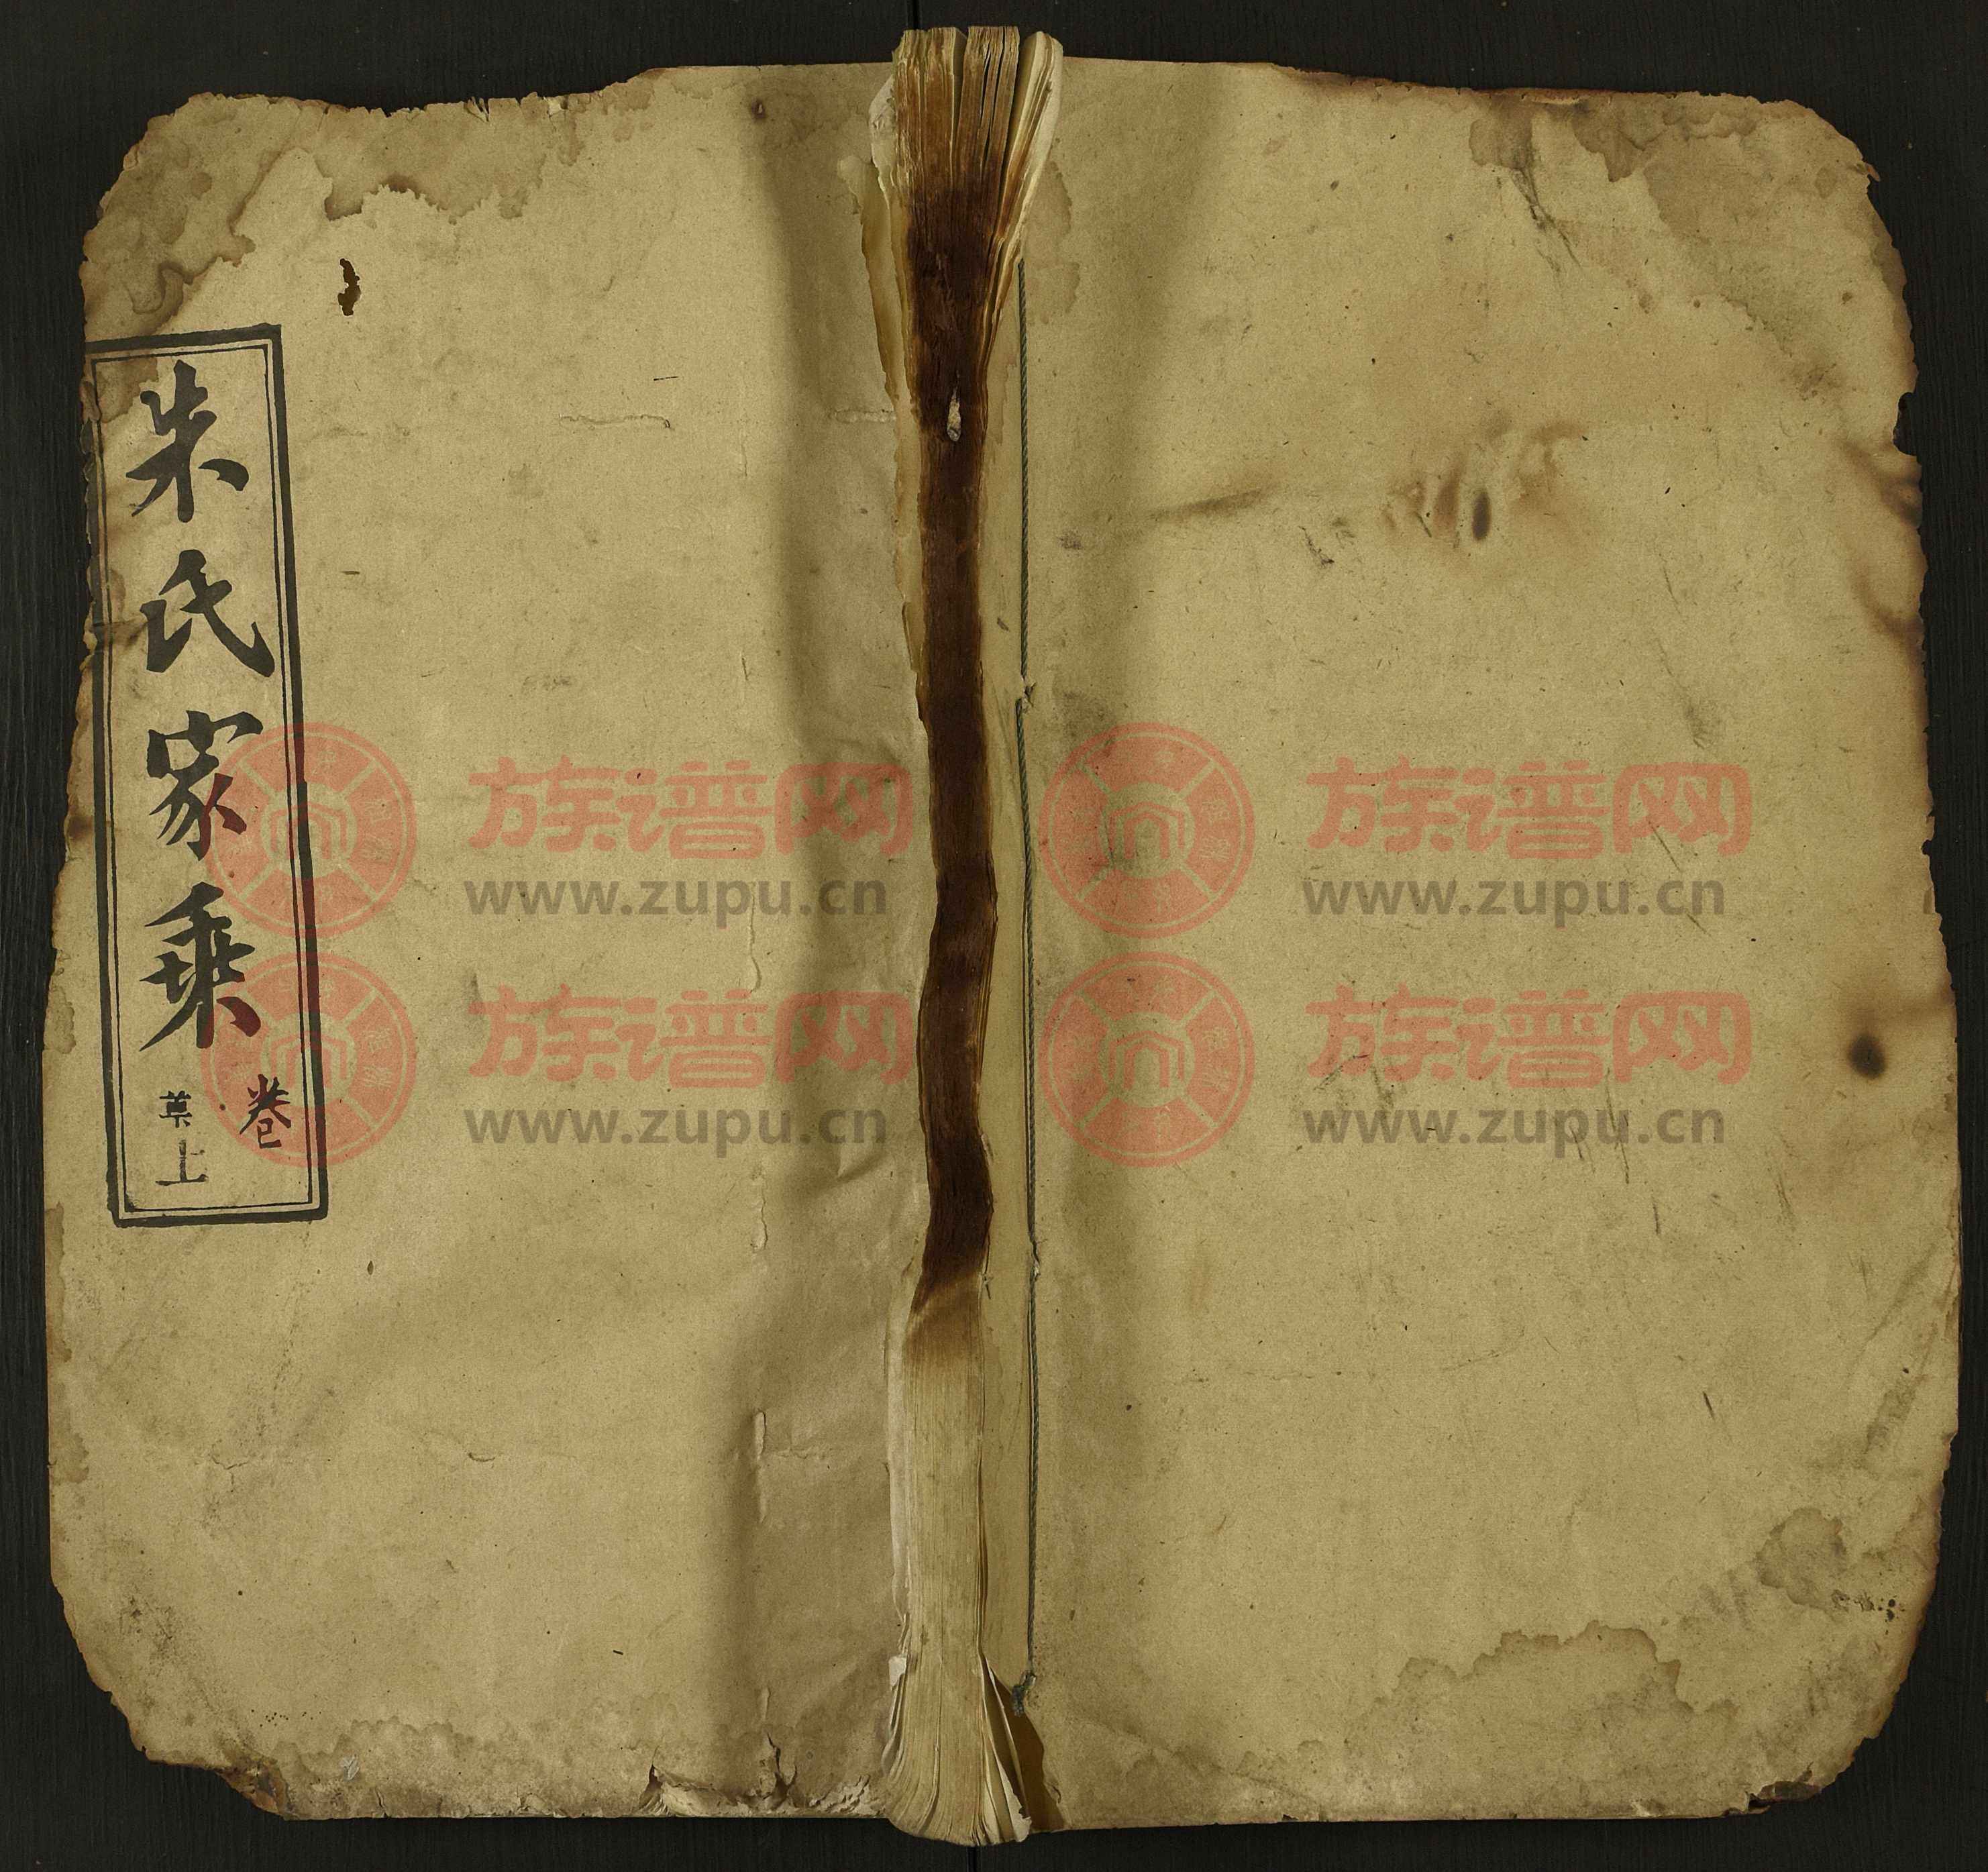 朱氏家乘
卷
上
族谱网
www.zupu.cn
族谱网
www.zupu.cn
族谱网
www.zupu.cn
族谱网
www.zupu.cn